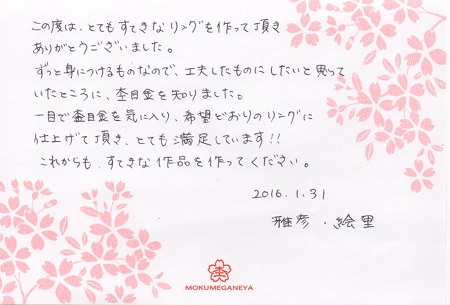 この度は、とてもすてきなリングを作って頂き
ありがとうございました。
ずっと身につけるものなので、工夫したものにしたいと思って
いたところに、杢目金を知りました。
一目で杢目金を気に入り、希望どおりのリングに
仕上げて頂き、とても満足しています!!
これからも、すてきな作品を作ってください。
2016.1.31
雅彦・絵里
MOKUMEGANEYA